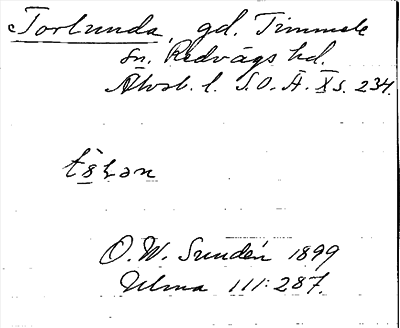 Torlunda, gd. Timmele
sn. Redvägs hd.
Älvsb. l. S.O.Ä. X s. 234.
O.W. Sundén 1899
Ulma 111:287.